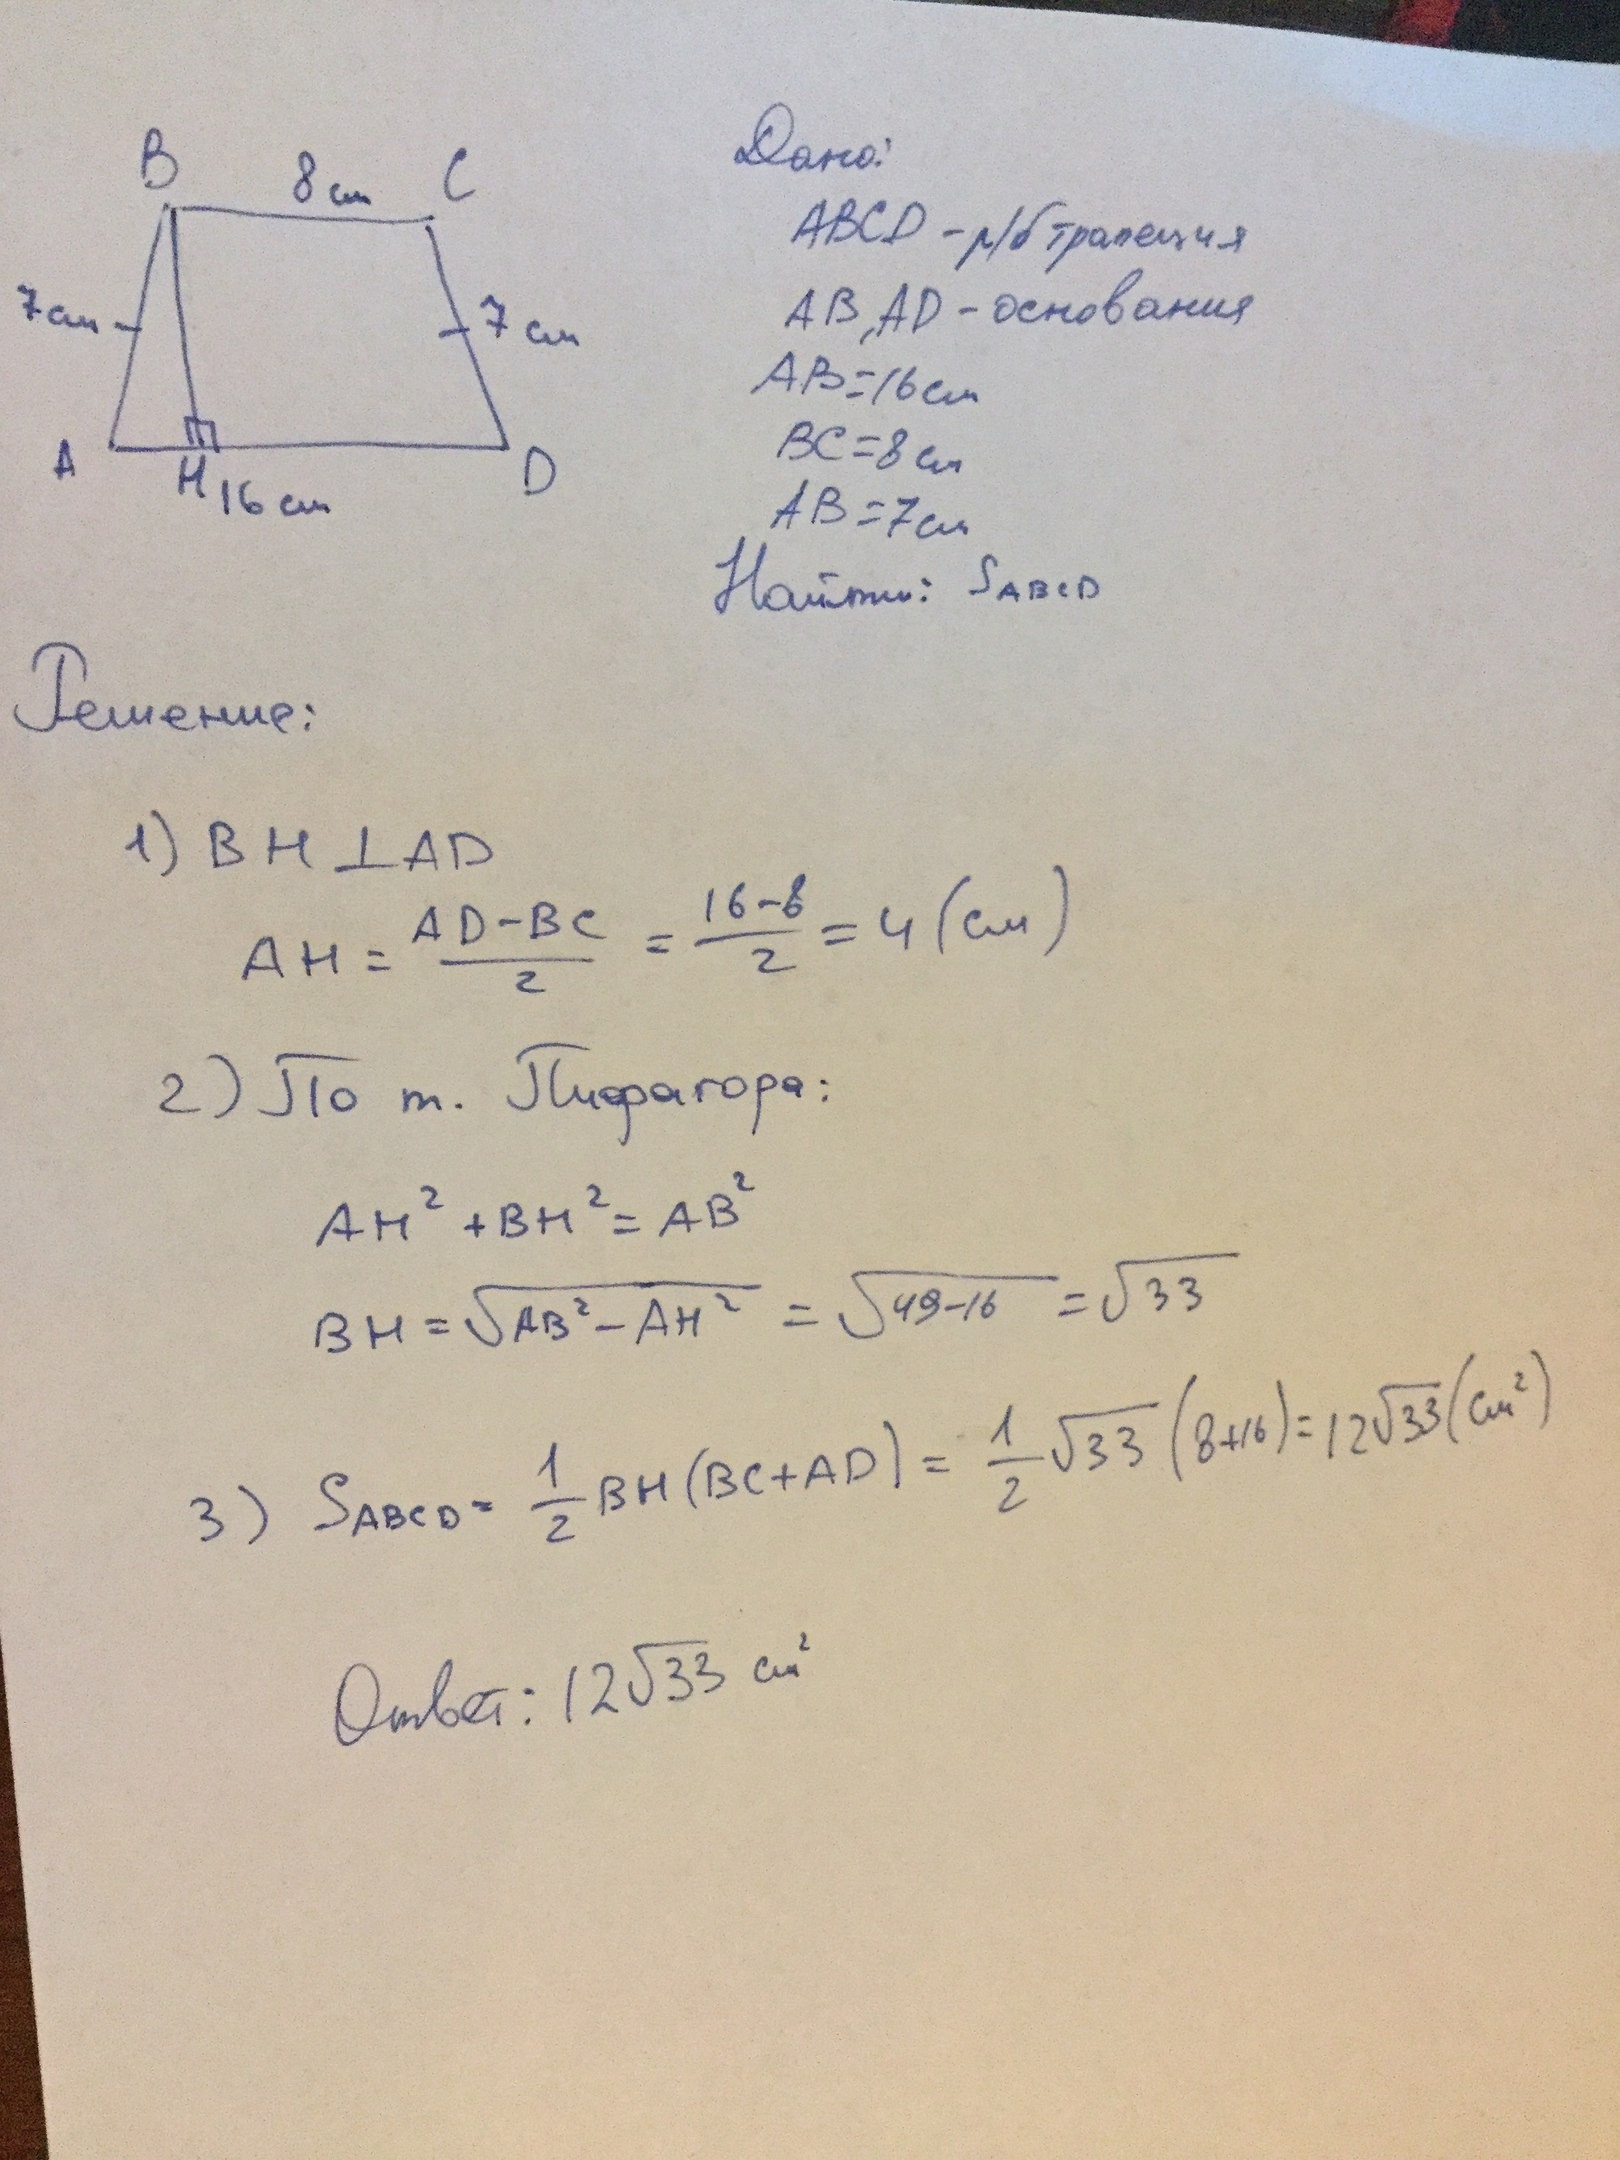 B 8 см C
7 см 7 см
A H 16 см D
Дано:
ABCD - р/б трапеция
AB, AD - основания
AB = 16 см
BC = 8 см
AB = 7 см
Найти: S_ABCD
Решение:
1) BH ⊥ AD
AH = (AD - BC)/2 = (16 - 8)/2 = 4 (см)
2) По т. Пифагора:
AH² + BH² = AB²
BH = √(AB² - AH²) = √(49 - 16) = √33
3) S_ABCD = 1/2 BH (BC + AD) = 1/2 √33 (8+16) = 12√33 (см²)
Ответ: 12√33 см²